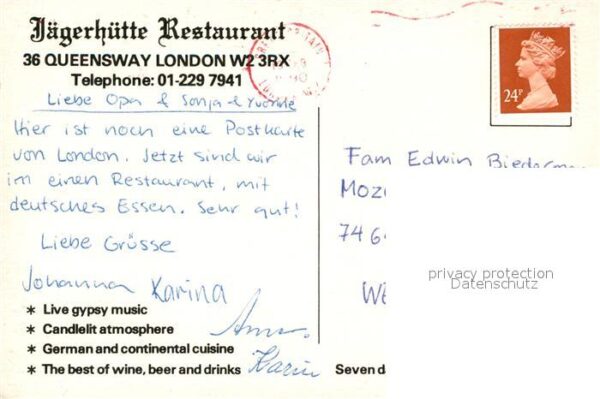 Jägerhütte Restaurant
36 QUEENSWAY LONDON W2 3RX
Telephone: 01-229 7941
Liebe Opa & Sonja & Yvonne
Hier ist noch eine Postkarte
von London. Jetzt sind wir
im einen Restaurant, mit
deutsches Essen. Sehr gut!
Liebe Grüsse
Johanna Karina
Karin
* Live gypsy music
* Candlelit atmosphere
* German and continental cuisine
* The best of wine, beer and drinks
Seven d
24P
Fam Edwin Biederm
Moz
74 6
WE
privacy protection
Datenschutz